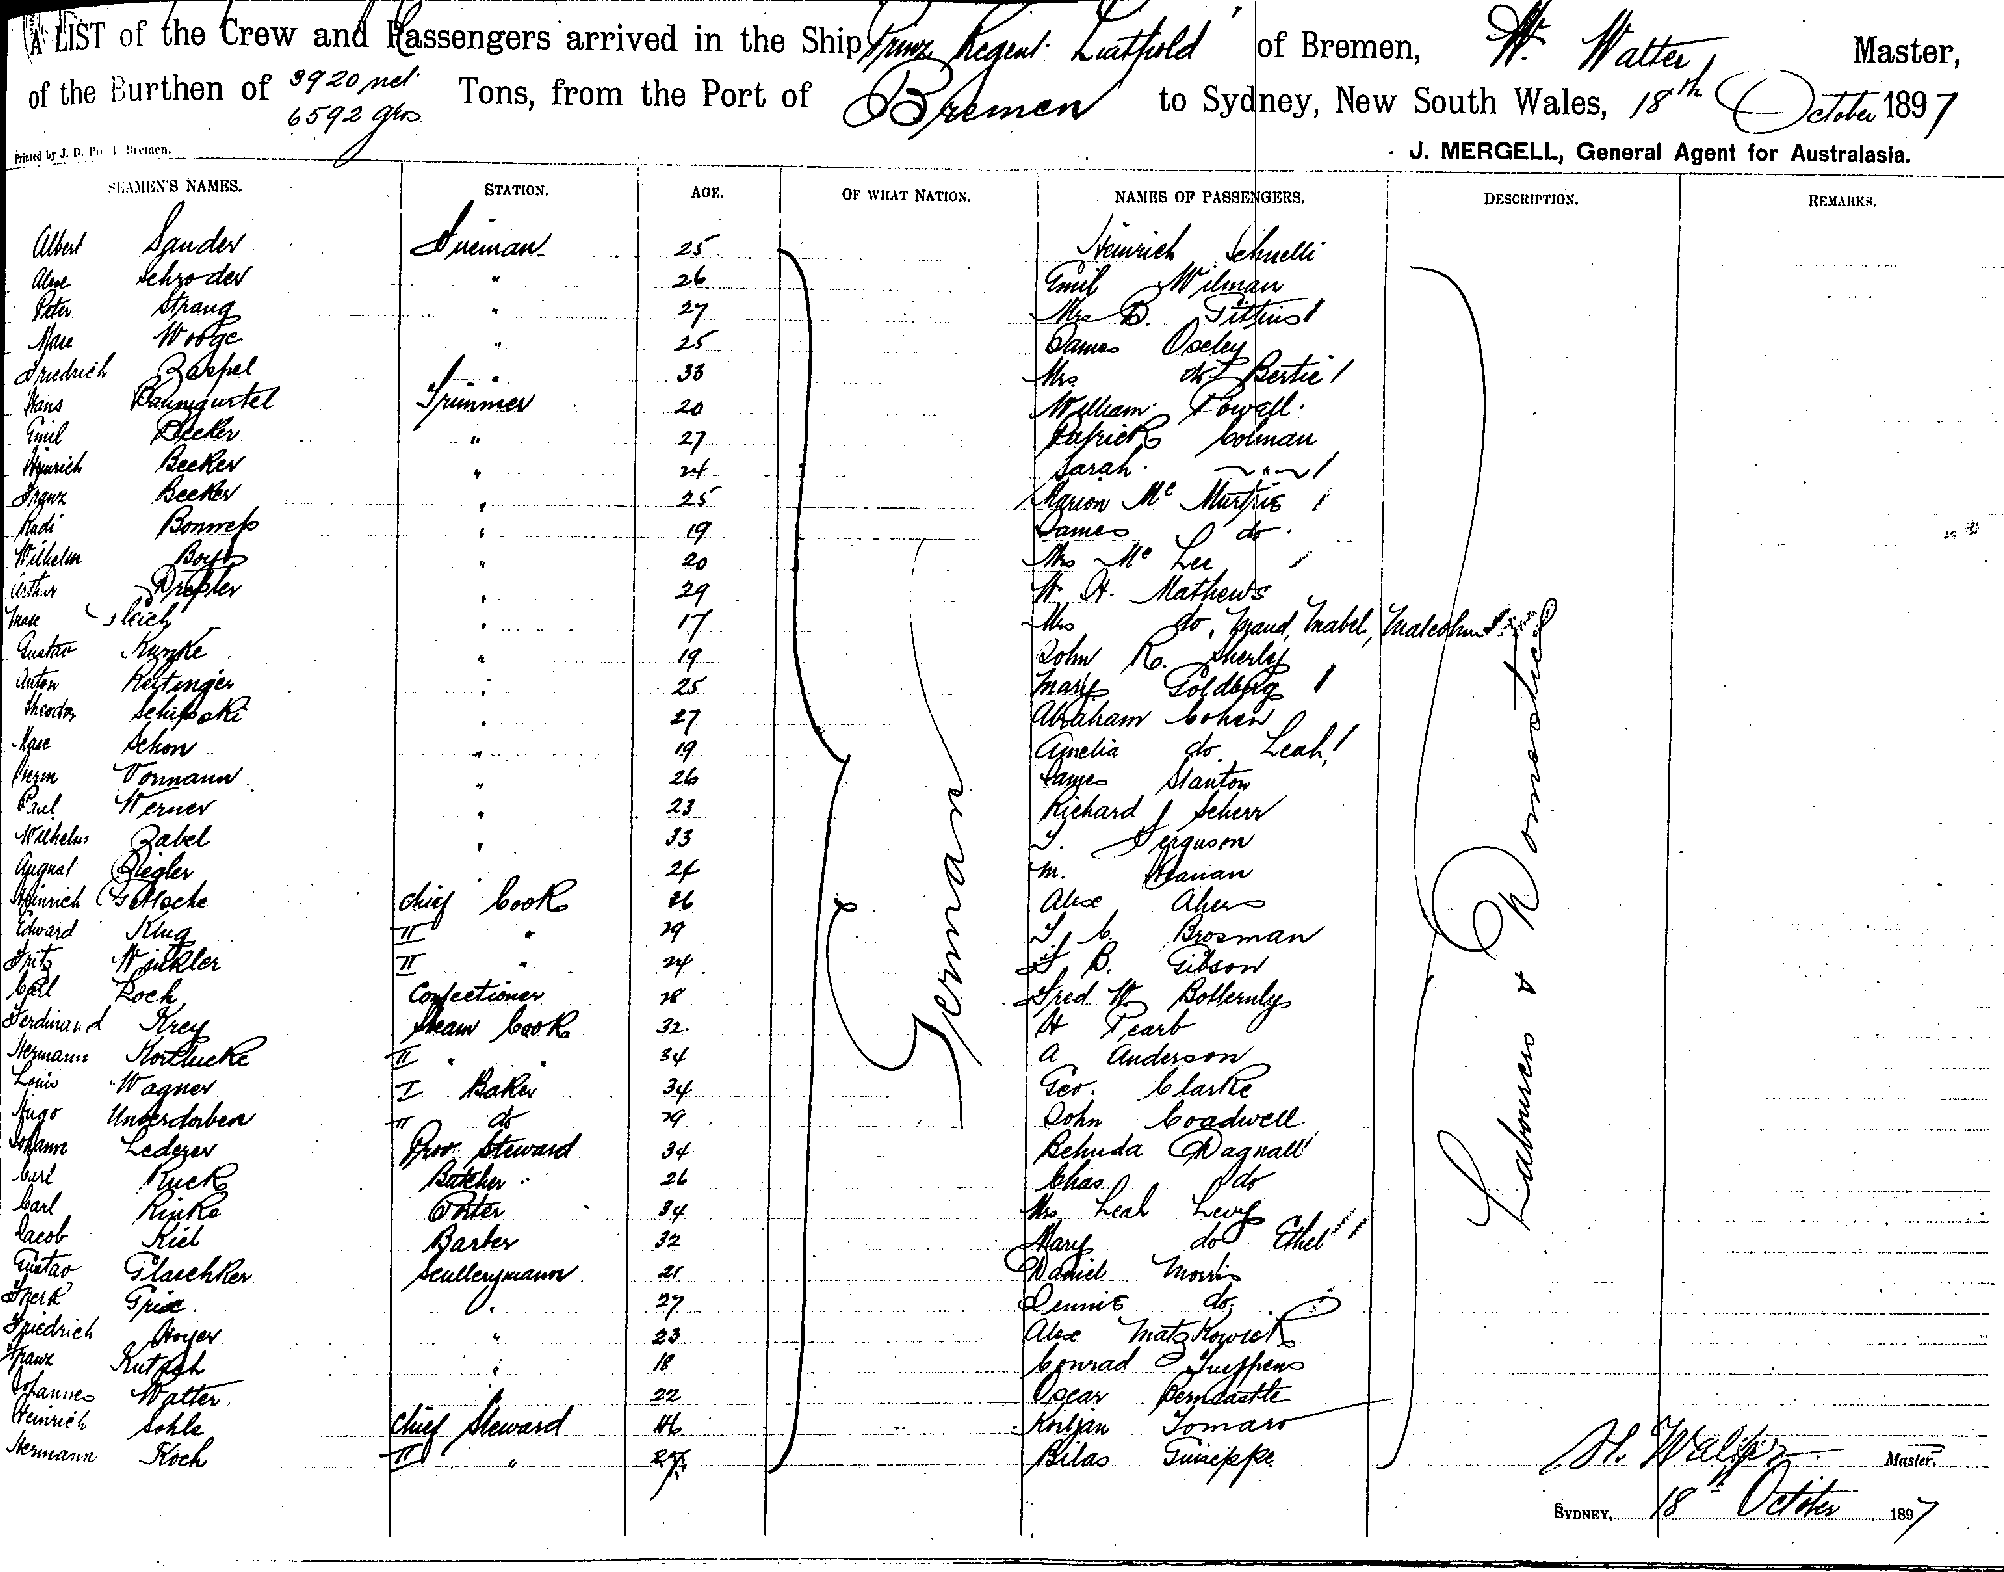 A LIST of the Crew and Passengers arrived in the Ship Prinz Regent Luitpold of Bremen, H. Walter Master,
of the Burthen of 3920 net 6592 gros Tons, from the Port of Bremen to Sydney, New South Wales, 18th October 1897
Printed by J. D. Bremen.
J. MERGELL, General Agent for Australasia.
SEAMEN'S NAMES. STATION. AGE. OF WHAT NATION. NAMES OF PASSENGERS. DESCRIPTION. REMARKS.
Albert Sander Fireman 25 Heinrich Schnelli
Schroder " 26 Emil Wilman
Peter Strang " 27 Mrs B. Pittins
Wooge " 25 James Oxeley
Friedrich Zaspel " 33 Mrs do Bertie
Hans Baumgurtel Trimmer 20 William Powell
Emil Becker " 27 Patrick Colman
Heinrich Becker " 24 Sarah "
Franz Becker " 25 Marion Mc Murtrie
Rudi Bonness " 19 James do
Wilhelm " 20 Mrs Mc Lee
Arthur Dressler " 29 W. H. Mathews
17 Mrs do, Maud, Mabel, Malcolm
Gustav Kunzke " 19 John R. Sherly
Anton Reitinger " 25 Mary Goldberg
Theodor Schipski " 27 Abraham Cohen
Schon " 19 Amelia do Leah
Vormann " 26 James Stanton
Paul Werner " 23 Richard J Scherr
Wilhelm Zabel " 33 Ferguson
August Ziegler 24 M. Hanan
Heinrich Chief Cook 26 Alex Ahern
Edward Klug II " 29 C. Brosman
Fritz Winkler II " 24 B. Gibson
Carl Koch Confectioner 28 Fred W.
Ferdinand Krey Steam Cook 32 H Pearb
Hermann Kortlucke II " " 34 A Anderson
Louis Wagner I Baker 34 Geo. Clarke
Hugo Unverdorben II do 29 John Coadwell
Johann Lederer Prov. Steward 34 Behuda Dagnall
Carl Ruck Butcher 26 Chas. do
Carl Rinke Porter 34 Mrs Leah Levy
Jacob Kiel Barber 32 Mary do Ethel
Gustav Flaschker Scullerymann 21 Daniel Morris
Grix " 27 Dennis do
Friedrich Hoyer " 23 Alex Matzkowick
Franz Kutzsch " 18 Conrad Jueppens
Johannes Walter 22 Oscar Berncastle
Heinrich Sohle Chief Steward 46 Tomaro
Hermann Koch II " 27 Bilas Guiseppe
German
Labourers & Domestics
H. Walter Master.
SYDNEY, 18th October 1897